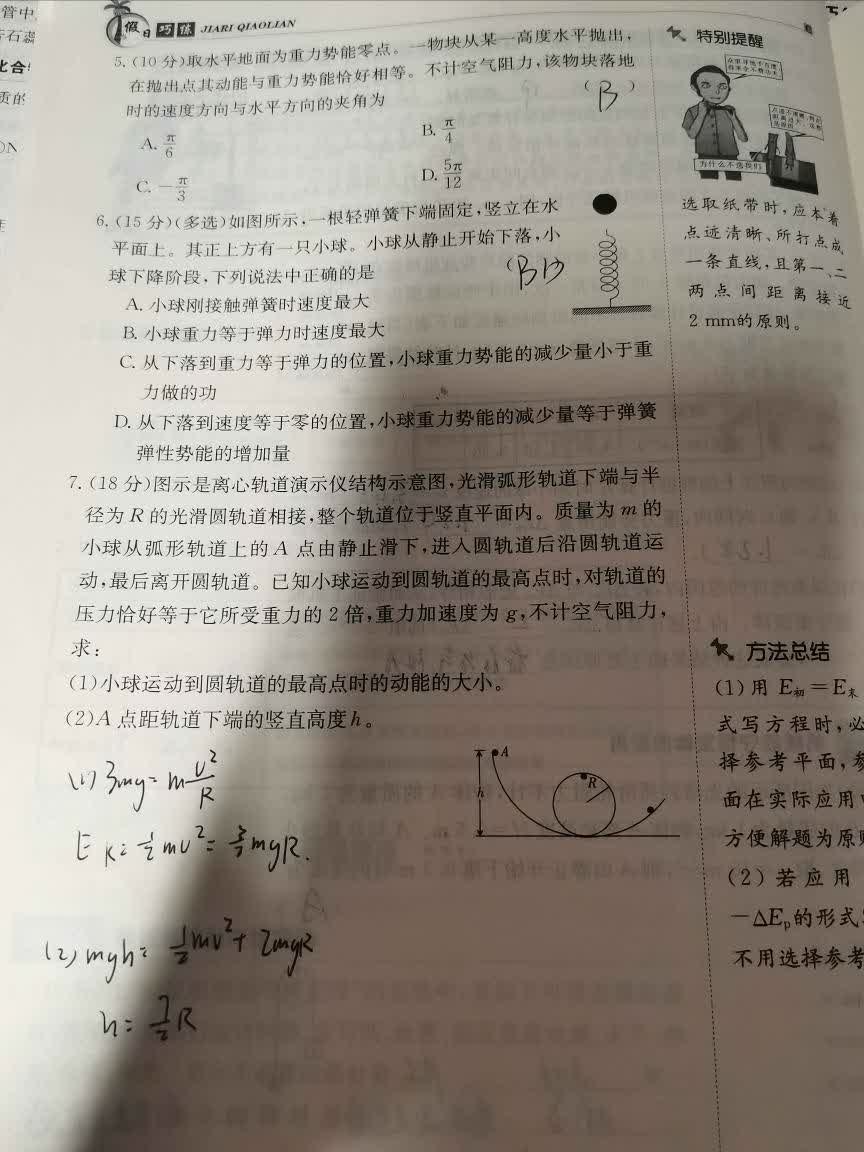 管中
假日巧练 JIARI QIAOLIAN
5.(10分)取水平地面为重力势能零点。一物块从某一高度水平抛出,
在抛出点其动能与重力势能恰好相等。不计空气阻力,该物块落地
时的速度方向与水平方向的夹角为
(B)
A. π/6
B. π/4
C. -π/3
D. 5π/12
6.(15分)(多选)如图所示,一根轻弹簧下端固定,竖立在水
平面上。其正上方有一只小球。小球从静止开始下落,小
球下降阶段,下列说法中正确的是
(BD)
A. 小球刚接触弹簧时速度最大
B. 小球重力等于弹力时速度最大
C. 从下落到重力等于弹力的位置,小球重力势能的减少量小于重
力做的功
D. 从下落到速度等于零的位置,小球重力势能的减少量等于弹簧
弹性势能的增加量
7.(18分)图示是离心轨道演示仪结构示意图,光滑弧形轨道下端与半
径为R的光滑圆轨道相接,整个轨道位于竖直平面内。质量为m的
小球从弧形轨道上的A点由静止滑下,进入圆轨道后沿圆轨道运
动,最后离开圆轨道。已知小球运动到圆轨道的最高点时,对轨道的
压力恰好等于它所受重力的2倍,重力加速度为g,不计空气阻力,
求:
(1)小球运动到圆轨道的最高点时的动能的大小。
(2)A点距轨道下端的竖直高度h。
A
h
R
(1) 3mg=m v²/R
Ek=½mv²=3/2mgR.
(2) mgh=½mv²+2mgR
h=7/2R
特别提醒
为什么不选我们
选取纸带时,应本着
点迹清晰、所打点成
一条直线,且第一、二
两点间距离接近
2 mm的原则。
方法总结
(1)用E初=E末
式写方程时,必
择参考平面,参
面在实际应用中
方便解题为原则
(2)若应用
-ΔEp的形式
不用选择参考